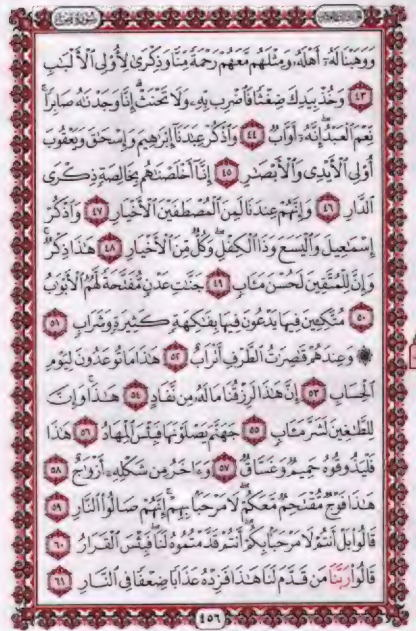 وَوَهَبْنَا لَهُۥٓ أَهْلَهُۥ وَمِثْلَهُم مَّعَهُمْ رَحْمَةً مِّنَّا وَذِكْرَىٰ لِأُو۟لِى ٱلْأَلْبَـٰبِ
٤٣ وَخُذْ بِيَدِكَ ضِغْثًا فَٱضْرِب بِّهِۦ وَلَا تَحْنَثْ ۗ إِنَّا وَجَدْنَـٰهُ صَابِرًا ۚ
نِّعْمَ ٱلْعَبْدُ ۖ إِنَّهُۥٓ أَوَّابٌ ٤٤ وَٱذْكُرْ عِبَـٰدَنَآ إِبْرَٰهِيمَ وَإِسْحَـٰقَ وَيَعْقُوبَ
أُو۟لِى ٱلْأَيْدِى وَٱلْأَبْصَـٰرِ ٤٥ إِنَّآ أَخْلَصْنَـٰهُم بِخَالِصَةٍ ذِكْرَى
ٱلدَّارِ ٤٦ وَإِنَّهُمْ عِندَنَا لَمِنَ ٱلْمُصْطَفَيْنَ ٱلْأَخْيَارِ ٤٧ وَٱذْكُرْ
إِسْمَـٰعِيلَ وَٱلْيَسَعَ وَذَا ٱلْكِفْلِ ۖ وَكُلٌّ مِّنَ ٱلْأَخْيَارِ ٤٨ هَـٰذَا ذِكْرٌ ۚ
وَإِنَّ لِلْمُتَّقِينَ لَحُسْنَ مَـَٔابٍ ٤٩ جَنَّـٰتِ عَدْنٍ مُّفَتَّحَةً لَّهُمُ ٱلْأَبْوَٰبُ
٥٠ مُتَّكِـِٔينَ فِيهَا يَدْعُونَ فِيهَا بِفَـٰكِهَةٍ كَثِيرَةٍ وَشَرَابٍ ٥١
۞ وَعِندَهُمْ قَـٰصِرَٰتُ ٱلطَّرْفِ أَتْرَابٌ ٥٢ هَـٰذَا مَا تُوعَدُونَ لِيَوْمِ
ٱلْحِسَابِ ٥٣ إِنَّ هَـٰذَا لَرِزْقُنَا مَا لَهُۥ مِن نَّفَادٍ ٥٤ هَـٰذَا ۚ وَإِنَّ
لِلطَّـٰغِينَ لَشَرَّ مَـَٔابٍ ٥٥ جَهَنَّمَ يَصْلَوْنَهَا فَبِئْسَ ٱلْمِهَادُ ٥٦ هَـٰذَا
فَلْيَذُوقُوهُ حَمِيمٌ وَغَسَّاقٌ ٥٧ وَءَاخَرُ مِن شَكْلِهِۦٓ أَزْوَٰجٌ ٥٨
هَـٰذَا فَوْجٌ مُّقْتَحِمٌ مَّعَكُمْ ۖ لَا مَرْحَبًۢا بِهِمْ ۚ إِنَّهُمْ صَالُوا۟ ٱلنَّارِ ٥٩
قَالُوا۟ بَلْ أَنتُمْ لَا مَرْحَبًۢا بِكُمْ ۖ أَنتُمْ قَدَّمْتُمُوهُ لَنَا ۖ فَبِئْسَ ٱلْقَرَارُ ٦٠
قَالُوا۟ رَبَّنَا مَن قَدَّمَ لَنَا هَـٰذَا فَزِدْهُ عَذَابًا ضِعْفًا فِى ٱلنَّارِ ٦١
٤٥٦